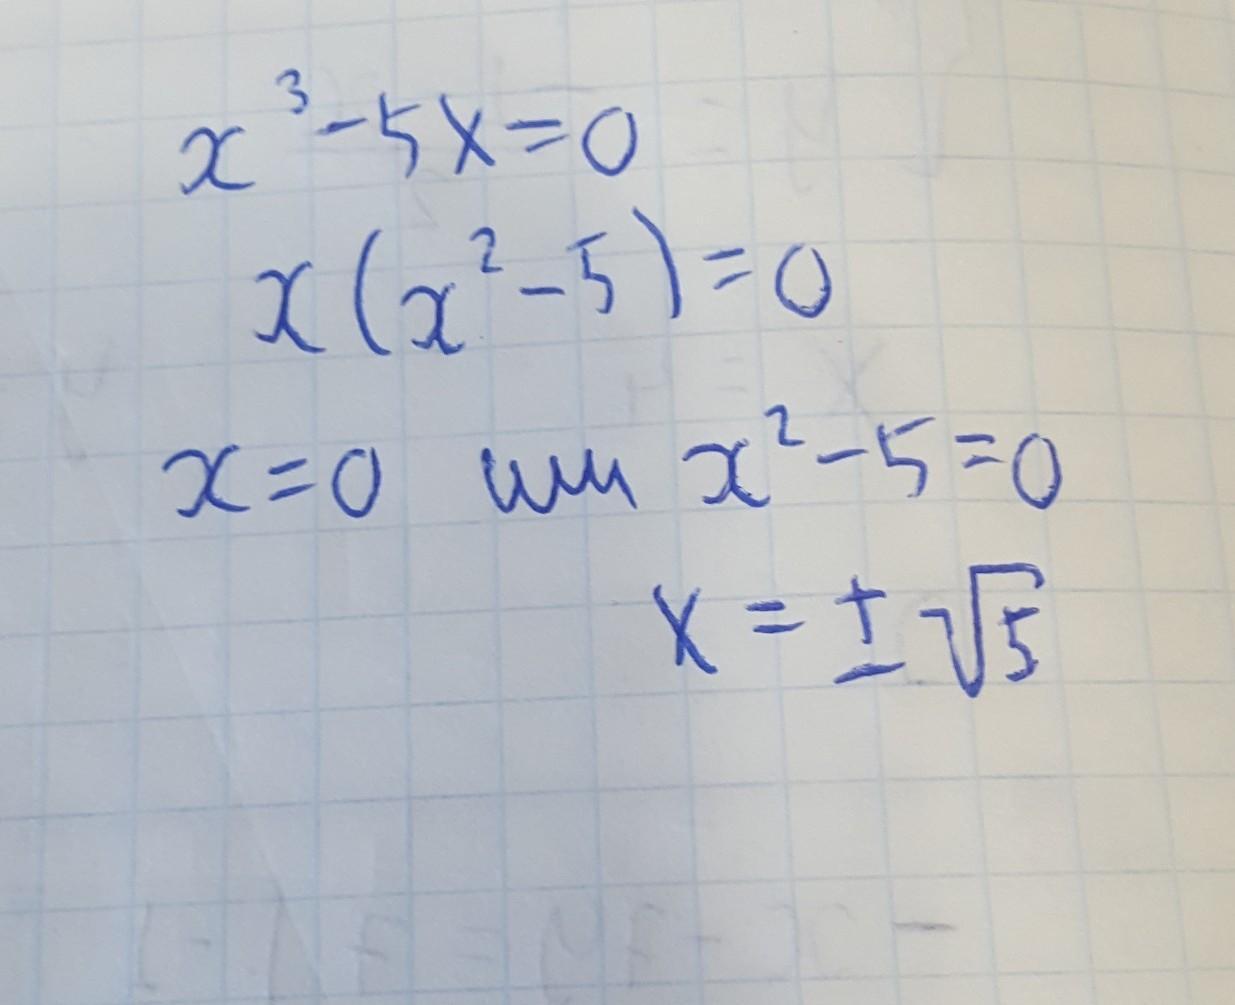 x³ - 5x = 0
x(x² - 5) = 0
x = 0 или x² - 5 = 0
x = ± √5